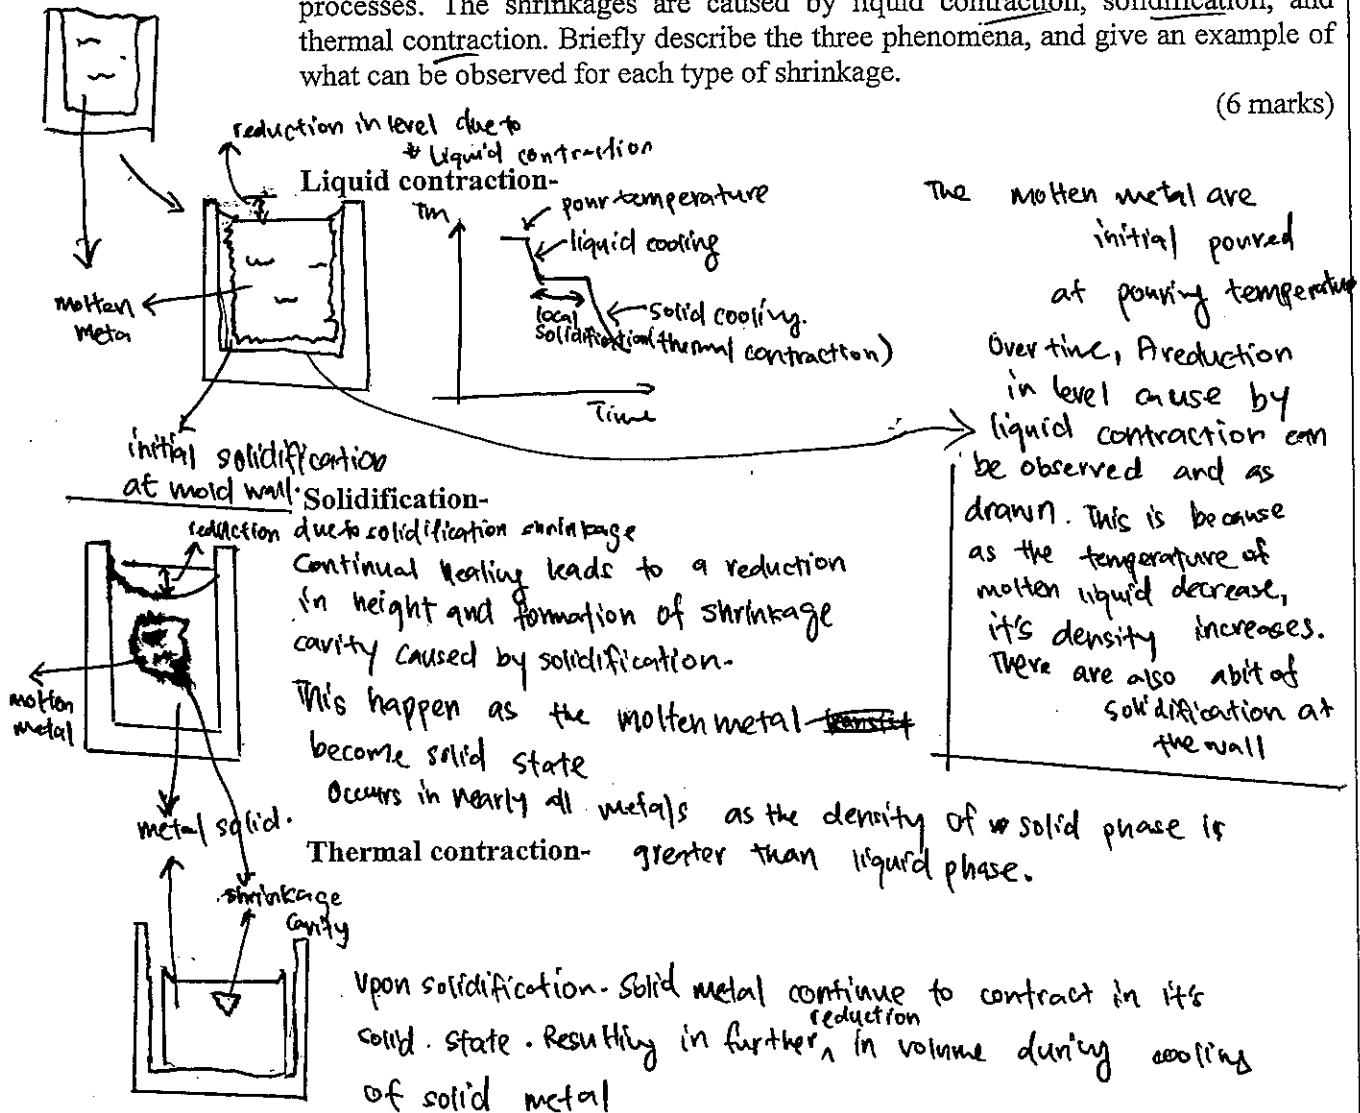 processes. The shrinkages are caused by liquid contraction, solidification, and
thermal contraction. Briefly describe the three phenomena, and give an example of
what can be observed for each type of shrinkage.
(6 marks)
reduction in level due to
liquid contraction
Liquid contraction-
Tm
pour temperature
liquid cooling
local
solidification
solid cooling.
(thermal contraction)
Time
molten
metal
initial solidification
at mold wall.
The molten metal are
initial poured
at pouring temperature
Over time, A reduction
in level cause by
liquid contraction can
be observed and as
drawn. This is because
as the temperature of
molten liquid decrease,
it's density increases.
There are also abit of
solidification at
the wall
Solidification-
reduction due to solidification shrinkage
Continual healing leads to a reduction
in height and formation of shrinkage
cavity caused by solidification.
This happen as the molten metal
become solid state
Occurs in nearly all metals as the density of solid phase is
greater than liquid phase.
molten
metal
metal solid.
Thermal contraction-
shrinkage
cavity
Upon solidification. Solid metal continue to contract in it's
solid. state. Resulting in further reduction in volume during cooling
of solid metal